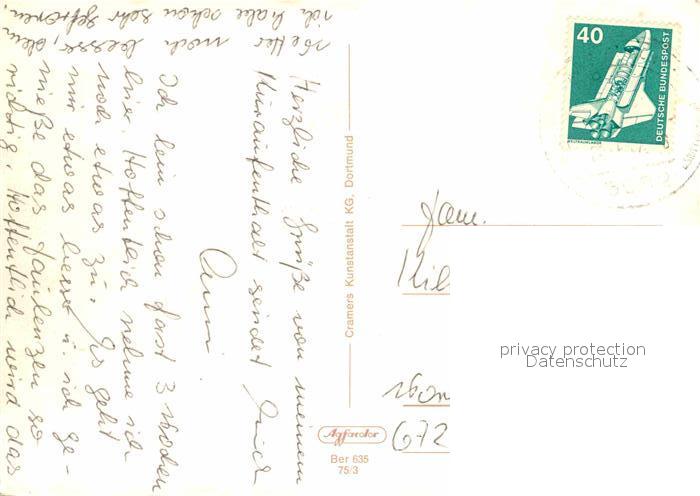 Herzliche Grüße von meinem
Kuraufenthalt sendet Euch
Anni.
Ich bin schon fast 3 Wochen
hier. Hoffentlich nehme ich
noch etwas zu. Es geht
mir etwas besser u. ich ge-
nieße das Faulenzen so
richtig. Hoffentlich wird das
Wetter noch besser, denn
ich habe schon sehr gefroren.
Cramers Kunstanstalt KG, Dortmund
Agfacolor
Ber 635
75/3
40
DEUTSCHE BUNDESPOST
WELTRAUMLABOR
Fam.
Kil
672
privacy protection
Datenschutz